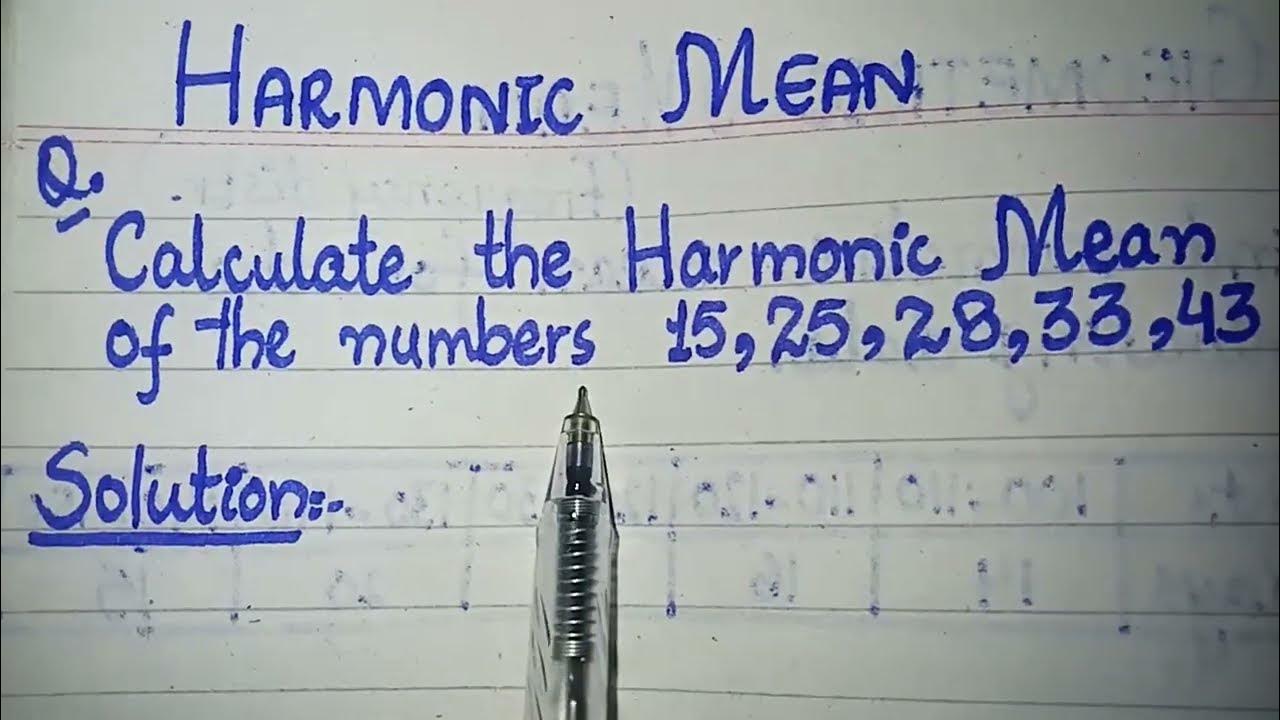 HARMONIC MEAN
Q.
Calculate the Harmonic Mean
of the numbers 15, 25, 28, 33, 43
Solution:-